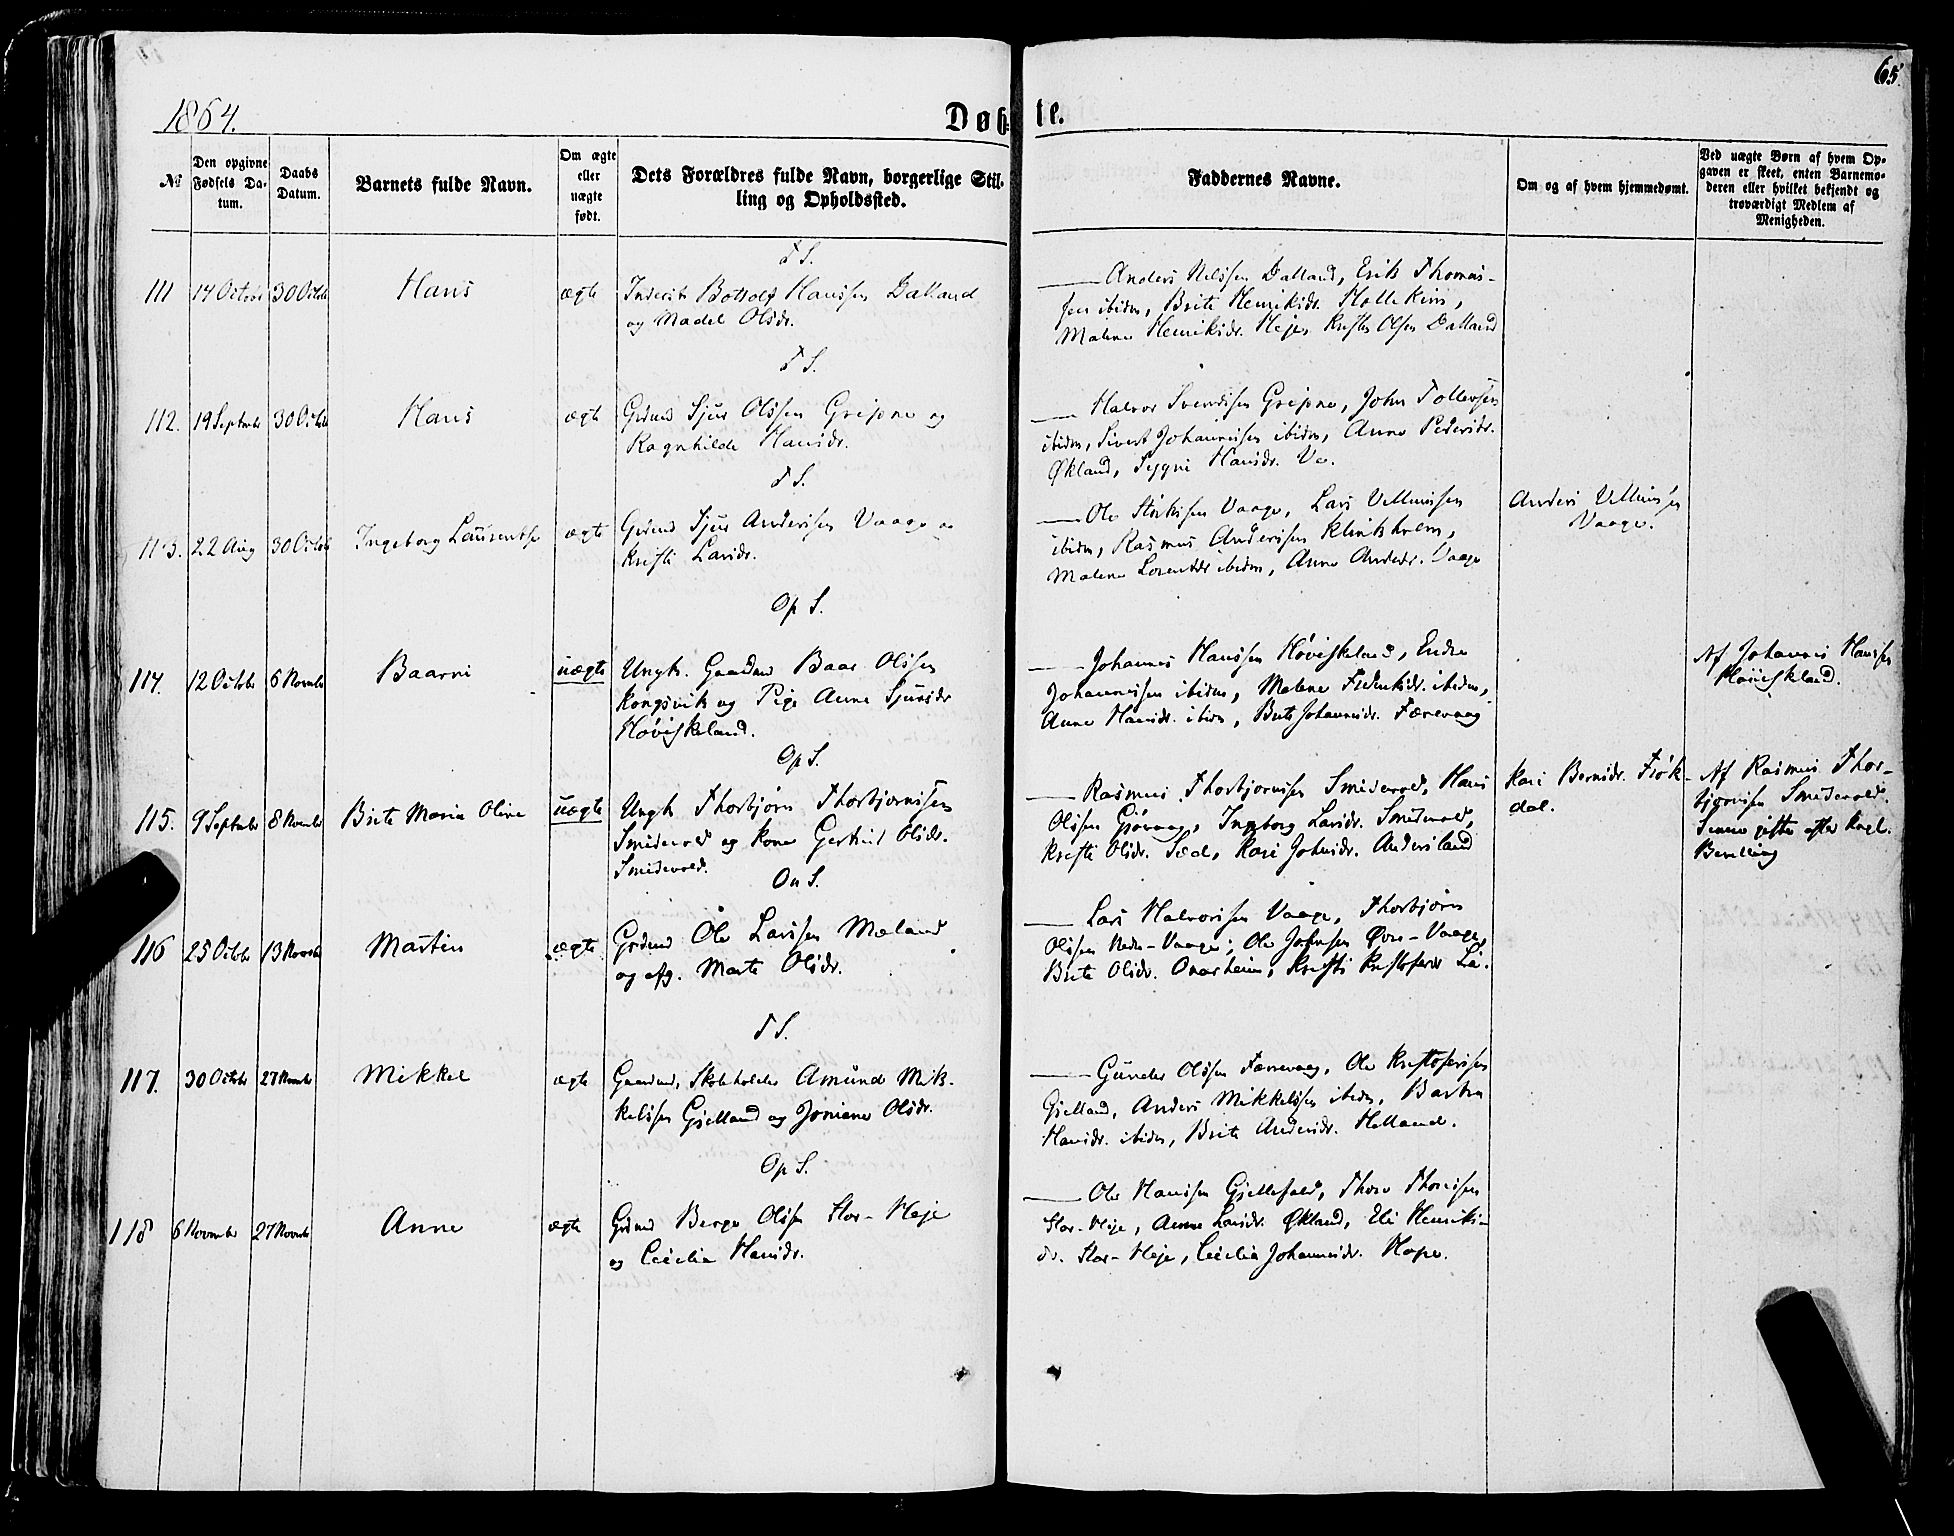 65.
1864.
Døbte.
№
Den opgivne Fødsels Datum.
Daabs Datum.
Barnets fulde Navn.
Om ægte eller uægte født.
Dets Forældres fulde Navn, borgerlige Stilling og Opholdssted.
Faddernes Navne.
Om og af hvem hjemmedømt.
Ved uægte Børn af hvem Opgaven er skeet, enten Barnemoderen eller hvilket bekjendt og troværdigt Medlem af Menigheden.
T S.
111 14 Octobr 30 Octob Hans ægte
Inderst Bottolf Hanssen Dalland
og Madel Olsdr.
Anders Nilssen Dalland, Erik Thomas-
sen ibidm, Brite Henriksdr.
Malene Henriksdr. Heje, Olsen Dalland
T S.
112. 19 Septmbr 30 Octob Hans ægte
Grdmd Sjur Olssen Gripne og
Ragnhilde Hansdr.
Halvor Svendsen Gripne, John Tollevsen
ibidm, Sivert Johannessen ibidm, Anne Pedersdr.
Økland, Hansdr.
T S.
113. 22 Aug 30 Octob Ingeborg Laurentse ægte
Grdmd Sjur Anderssen Vaage og
Kristi Larsdr.
Ole Vaage, Lars Villumsen
ibidm, Rasmus Anderssen
Malene ibidm, Anne Andsdr. Vaage
Anders Villumsen
Vaage.
Op S.
114. 12 Octobr 6 Novmbr Baarni uægte
Ungk. Gaardmd Baar Olssen
Kongsvik og Pige Anne Sjursdr
Høviskeland.
Johannes Hanssen Høviskeland, Endre
Johannessen ibidm, Malene ibidm,
Anne Hansdr. ibidm, Brite Johannesdr. Færevaag
Af Johannes Hanssen
Høviskeland.
Op S.
115. 9 Septmbr 8 Novmbr Brite Maria Olive uægte
Ungk Thorbjørn Thorbjørnssen
Smidevold og Kone Gertrud Olsdr.
Smidevold.
Rasmus Thorbjørnssen Smidevold, Hans
Olssen Ingeborg Larsdr. Smidevold,
Kristi Olsdr. Kari Johnsdr. Andersland
Kari Berntsdr. Frøk-
dal.
Af Rasmus Thor-
bjørnsen Smidevold.
Senere gifte efter Kngl.
Bevilling
On S.
116 25 Octobr 13 Novmbr Martin ægte
Grdmd Ole Larssen Mæland
og Marte Olsdr.
Lars Halvorssen Vaage, Thorbjørn
Olssen Nedre-Vaage; Ole Johnsen Øvre-Vaage,
Brite Olsdr. Onarheim, Kristi
T S.
117. 30 Octobr 27 Novmbr Mikkel ægte
Gaardmd, Skoleholder Amund Mik-
kelssen Gjelland og Joniane Olsdr.
Gunder Olssen Færevaag, Ole Kristofersen
Gjelland, Anders Mikkelssen ibidm, Barbra
Hansdr. ibidm, Brite Andersdr. Helland.
Op S.
118 6 Novmbr 27 Novmbr Anne ægte
Grdmd Berge Olssen Stor-Heje
og Cecilia Hansdr.
Ole Hanssen Gjellefald, Thore Thoressen
Stor-Heje, Anne Larsdr. Økland, Eli Henriks-
dr. Stor-Heje, Cecilia Johannesdr. Hope.